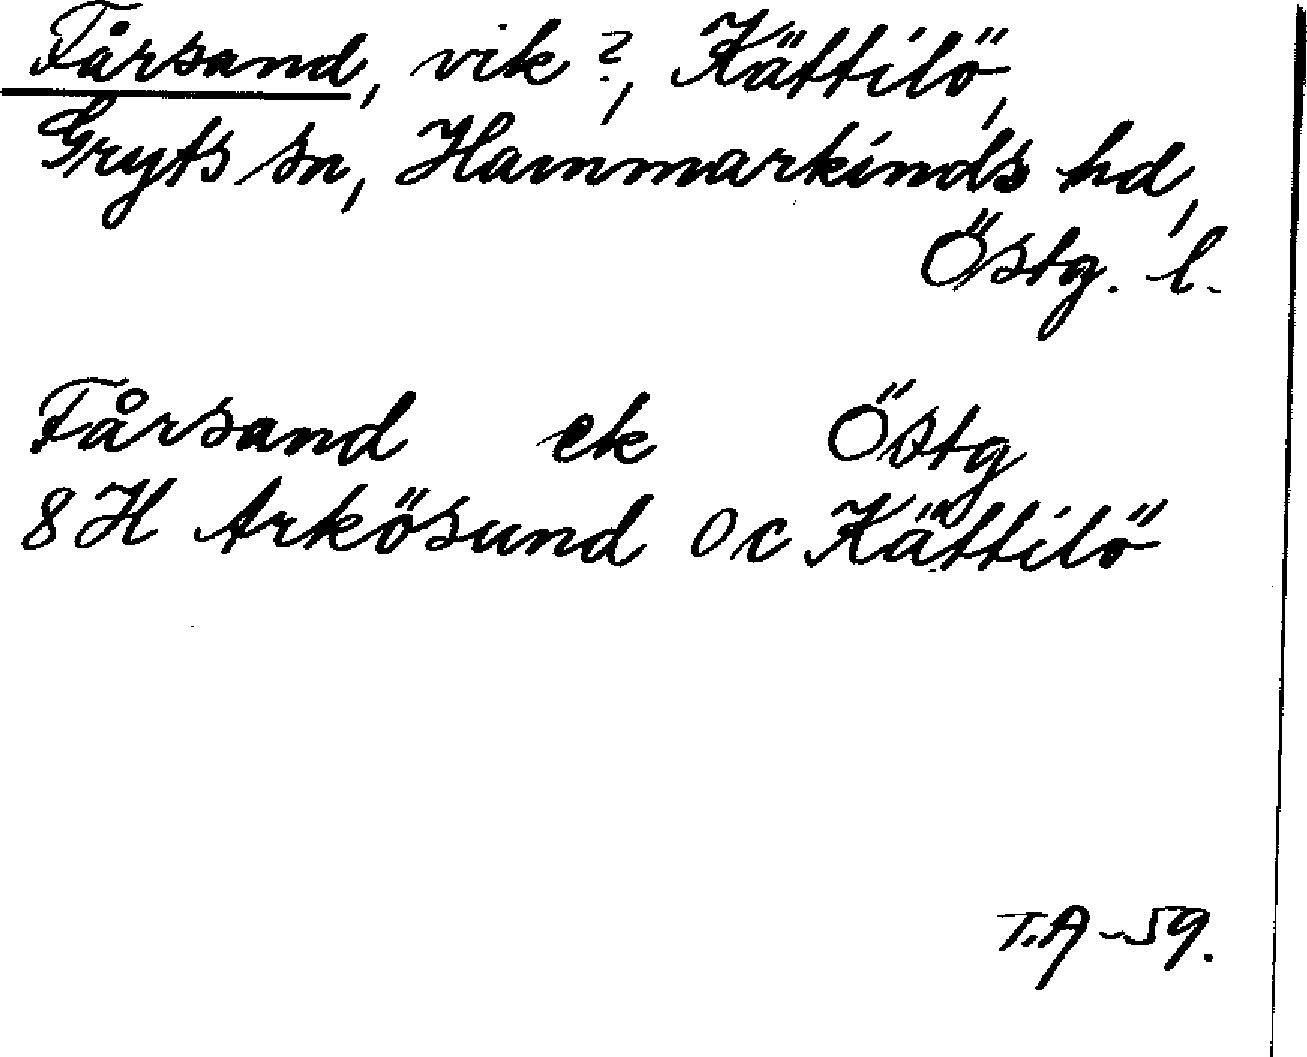 Fårsand, vik?, Kättilö,
Gryts sn, Hammarkinds hd,
Östg. l.
Fårsand ek Östg
8H Arkösund 0c Kättilö
T.A-59.